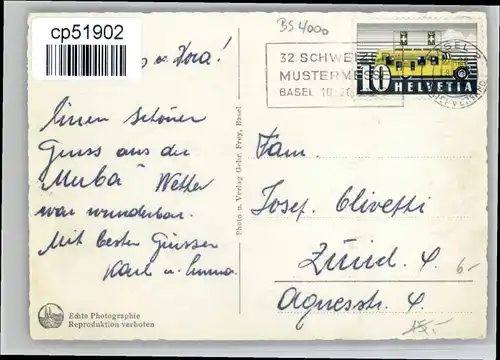 cp51902
BS 4000
u. Dora!
32. SCHWEIZ
MUSTERMESSE
BASEL 10-20
10
HELVETIA
Einen schöner
Gruss aus der
"Muba" Wetter
war wunderbar.
Mit besten Grüssen
Karl u. Emma.
Photo u. Verlag Gebr. Frey, Basel
Fam.
Josef Olivetti
Zürich 4.
Agnesstr. 4.
6.-
Echte Photographie
Reproduktion verboten